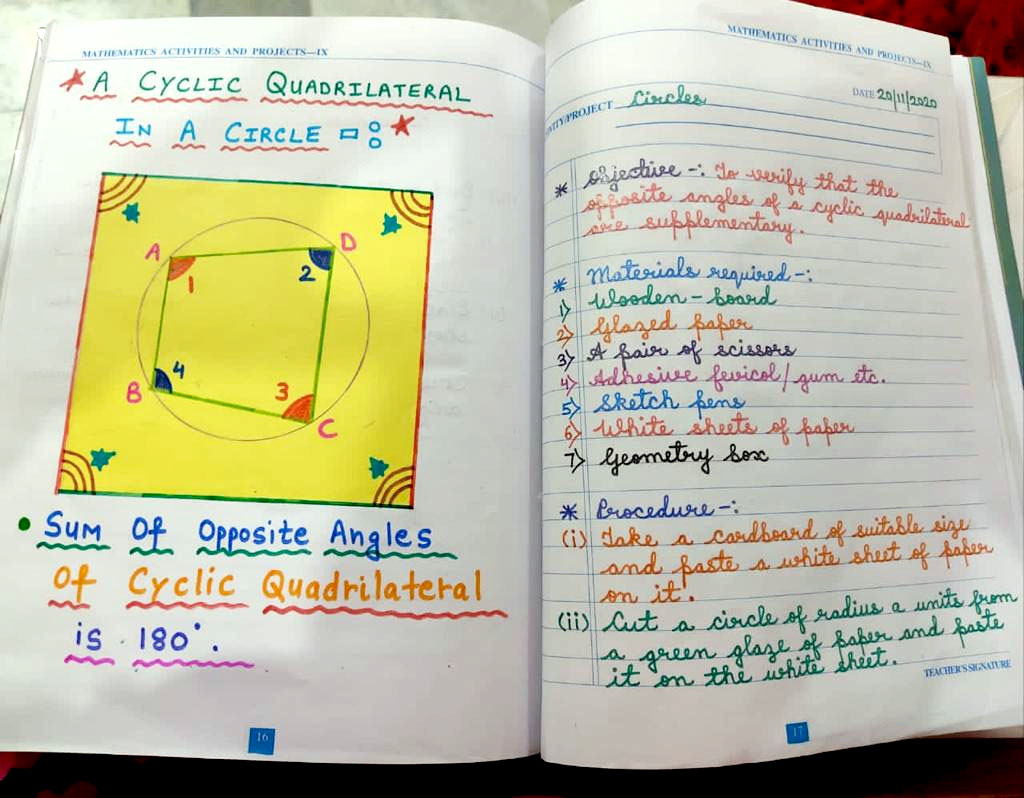 MATHEMATICS ACTIVITIES AND PROJECTS—IX
A CYCLIC QUADRILATERAL
IN A CIRCLE
A
D
1
2
B
4
3
C
SUM Of Opposite Angles
Of Cyclic Quadrilateral
is 180°.
16
MATHEMATICS ACTIVITIES AND PROJECTS—IX
VITY/PROJECT Circles
DATE 20/11/2020
* Objective -: To verify that the
opposite angles of a cyclic quadrilateral
are supplementary.
* Materials required -:
1) Wooden - board
2) Glazed paper
3) A pair of scissors
4) Adhesive fevicol / gum etc.
5) Sketch pens
6) White sheets of paper
7) Geometry box
* Procedure -:
(i) Take a cardboard of suitable size
and paste a white sheet of paper
on it.
(ii) Cut a circle of radius a units from
a green glaze of paper and paste
it on the white sheet.
TEACHER'S SIGNATURE
17